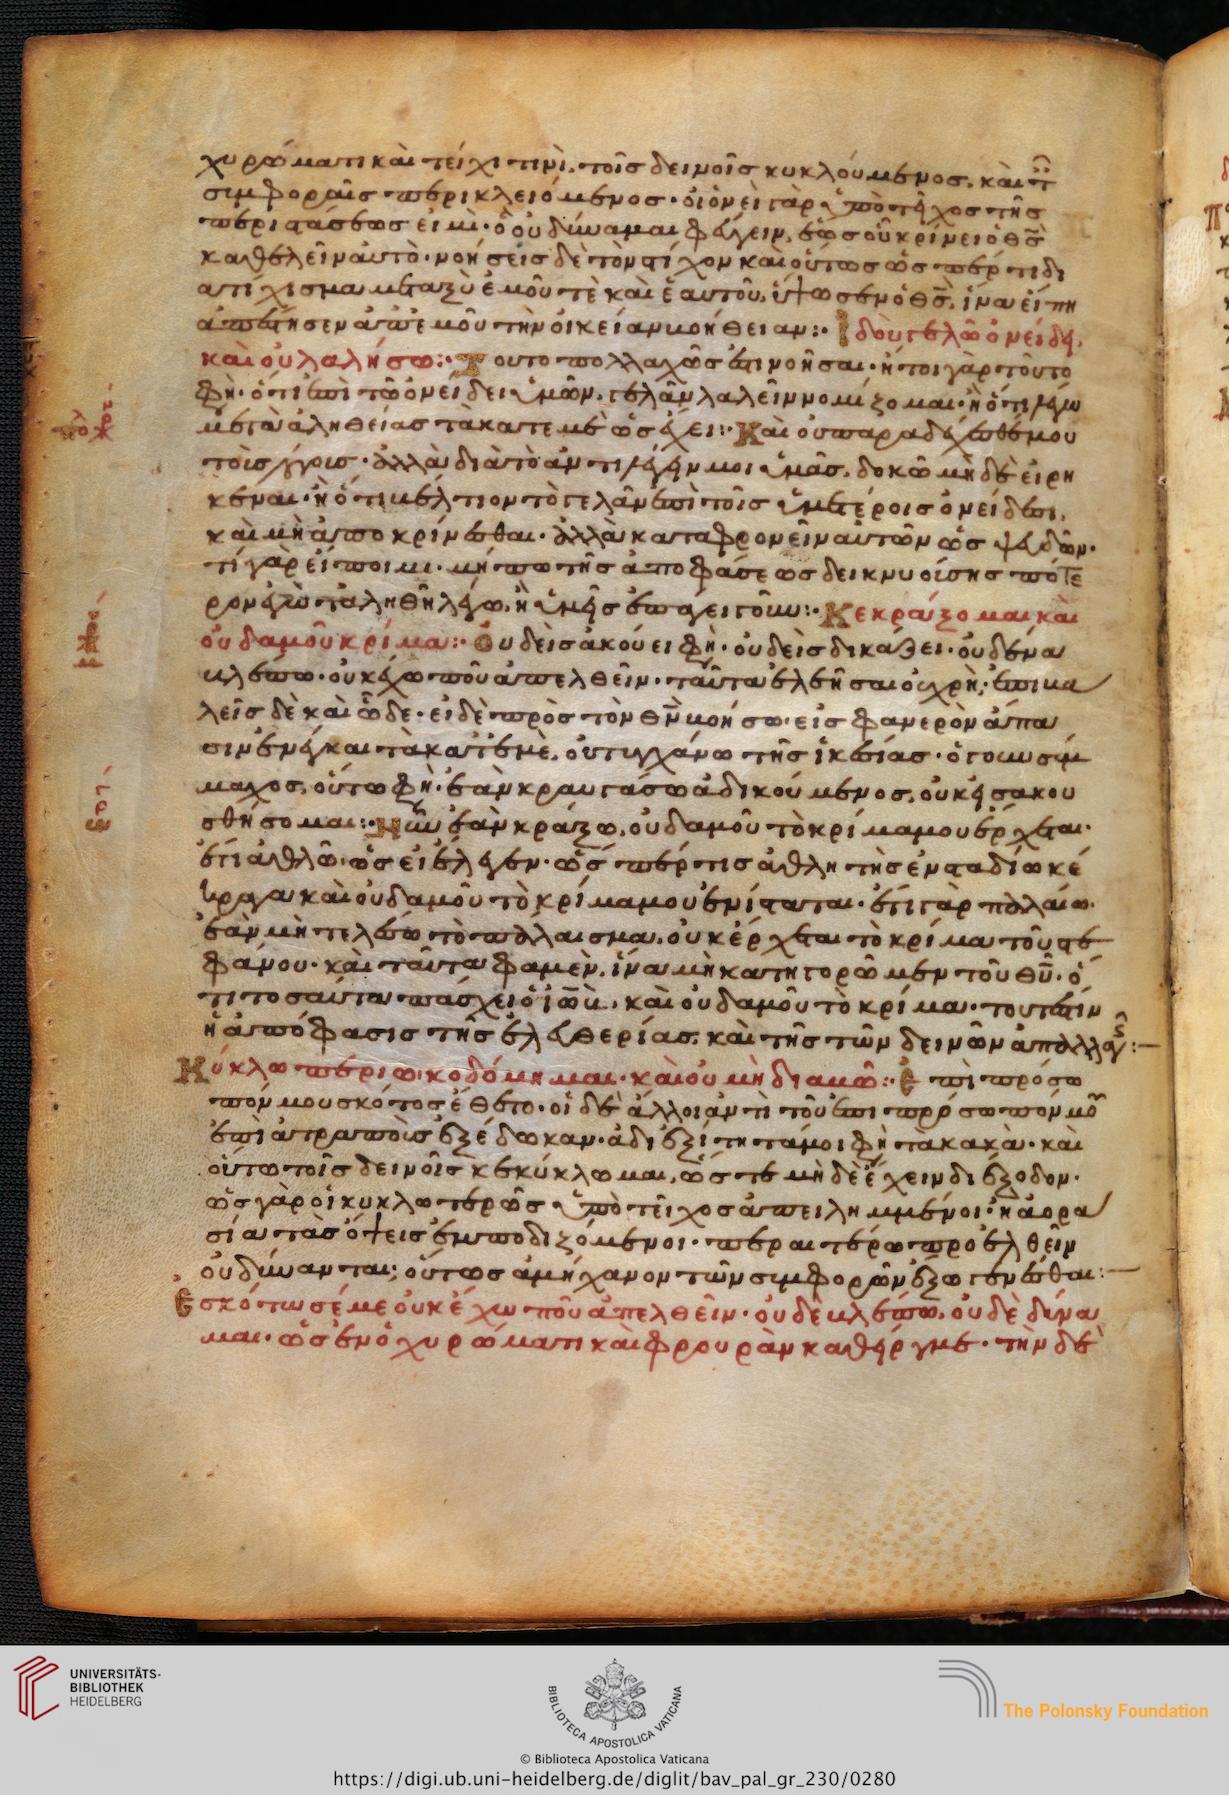 χυρώματι καὶ τείχι τινὶ, τοῖς δεινοῖς κυκλούμενος, καὶ τ
συμφοραῖς περικλειόμενος· οἱονεὶ γὰρ ὑπὸ τεῖχος τῆς
περιστάσεως εἰμὶ· ὃ οὐ δύναμαι φυγεῖν, ἕως οὗ κρίνει ὁ θς
καθελεῖν αὐτὸ· νοήσεις δὲ τὸν στίχον καὶ οὕτως ὥσπερ τι δι
ατίχισμα μεταξὺ ἐμοῦ τὲ καὶ ἑαυτοῦ, ὕψωσεν ὁ θς, ἵνα εἴπη
ἀπέστησεν ἀπ' ἐμοῦ τὴν οἰκείαν βοήθειαν:· Ἰδοὺ γελῶ ὀνείδει,
καὶ οὐ λαλήσω:· Τοῦτο πολλαχῶς ἔστι νοῆσαι· ἤτοι γὰρ τοῦτο
φὴ· ὅτι ἐπὶ τῶ ὀνείδει ὑμῶν, γελᾶν λαλεῖν νομίζομαι· ἢ ὅτι λέγω
μετὰ ἀληθείας τὰ κατ' ἐμὲ ὡς ἔχει:· Καὶ οὐ παραδέχεσθέ μου
τοῖς λόγοις· ἀλλὰ διὰ τὸ ἀντιλέγειν μοι ὑμᾶς, δοκῶ μὴ δὲ εἰρη
κέναι· ἢ ὅτι βέλτιον τὸ γελᾶν ἐπὶ τοῖς ὑμετέροις ὀνείδεσι,
καὶ μὴ ἀποκρίνεσθαι· ἀλλὰ καταφρονεῖν αὐτῶν ὡς ψευδῶν·
τί γὰρ εἴποιμι· μήπω τῆς ἀποφάσεως δεικνυούσης πότε
ρον ἐγὼ τἀληθῆ λέγω, ἢ ὑμεῖς
Κεκράξομαι καὶ
οὐδαμοῦ κρίμα:· Οὐδεὶς ἀκούει φὴ· οὐδεὶς δικάζει· οὐδένα
βλέπω· οὐκ ἔχω ποῦ ἀπελθεῖν· ταῦτα ἐλεῆσαι οὐ χρὴ; ἐπικα
λεῖς δὲ καὶ ὧδε· εἰ δὲ πρὸς τὸν θν βοήσω· εἰς φανερὸν ἅπα
σιν ἐνέγκαι τὰ κατ' ἐμὲ, οὐ τυγχάνω τῆς ἱκεσίας· ὁ γοῦν σύμ
μαχος, οὕτω φὴ· ἐὰν κραυγάσω ἀδικούμενος, οὐκ εἰσακου
σθήσομαι:· Νῦν ἐὰν κράζω, οὐδαμοῦ τὸ κρίμα μου ἔρχεται·
ἔτι ἀθλῶ· ὡς εἰ ἔλεγεν· ὥσπερ τις ἀθλητὴς ἐν σταδίω κέ
κραγα καὶ οὐδαμοῦ τὸ κρίμα μου ἐνίσταται· ἔτι γὰρ παλαίω·
ἐὰν μὴ τελέσω τὸ πάλαισμα, οὐκ ἔρχεται τὸ κρίμα τοῦ στε
φάνου· καὶ ταῦτα φαμὲν, ἵνα μὴ κατηγορῶμεν τοῦ θυ· ὅ
τι τοσαῦτα πάσχει ὁ ἰὼβ, καὶ οὐδαμοῦ τὸ κρίμα· τουτέστιν
ἡ ἀπόφασις τῆς ἐλευθερίας, καὶ τῆς τῶν δεινῶν ἀπαλλαγῆς:
Κύκλω περιωκοδόμημαι· καὶ οὐ μὴ διαβῶ:· Ἐπὶ πρόσω
πόν μου σκότος ἔθετο· οἱ δὲ ἄλλοι ἀντὶ τοῦ ἐπι πρόσωπόν μου
ἐπὶ ἀτραποῖς ἐξέδωκαν· ἀδιεξίτητά μοι φὴ τὰ κακὰ· καὶ
οὕτω τοῖς δεινοῖς κεκύκλωμαι, ὥς τε μὴ δὲ ἔχειν διέξοδον·
ὡς γὰρ οἱ κυκλωτερῶς ὑπὸ τεῖχος ἀπειλημμένοι· ἢ ἀορα
σία τὰς ὄψεις ἐμποδιζόμενοι· περαιτέρω προελθεῖν
οὐ δύνανται; οὕτως ἀμήχανον τῶν συμφορῶν ἔξω γενέσθαι:
Ἐσκότωσέ με οὐκ ἔχω ποῦ ἀπελθεῖν· οὐδὲ βλέπω, οὐδὲ δύνα
μαι· ὡς ἐν ὀχυρώματι καὶ φρουρὰν καθεῖργμε· τὴν δὲ
UNIVERSITÄTS-
BIBLIOTHEK
HEIDELBERG
BIBLIOTECA APOSTOLICA VATICANA
The Polonsky Foundation
© Biblioteca Apostolica Vaticana
https://digi.ub.uni-heidelberg.de/diglit/bav_pal_gr_230/0280